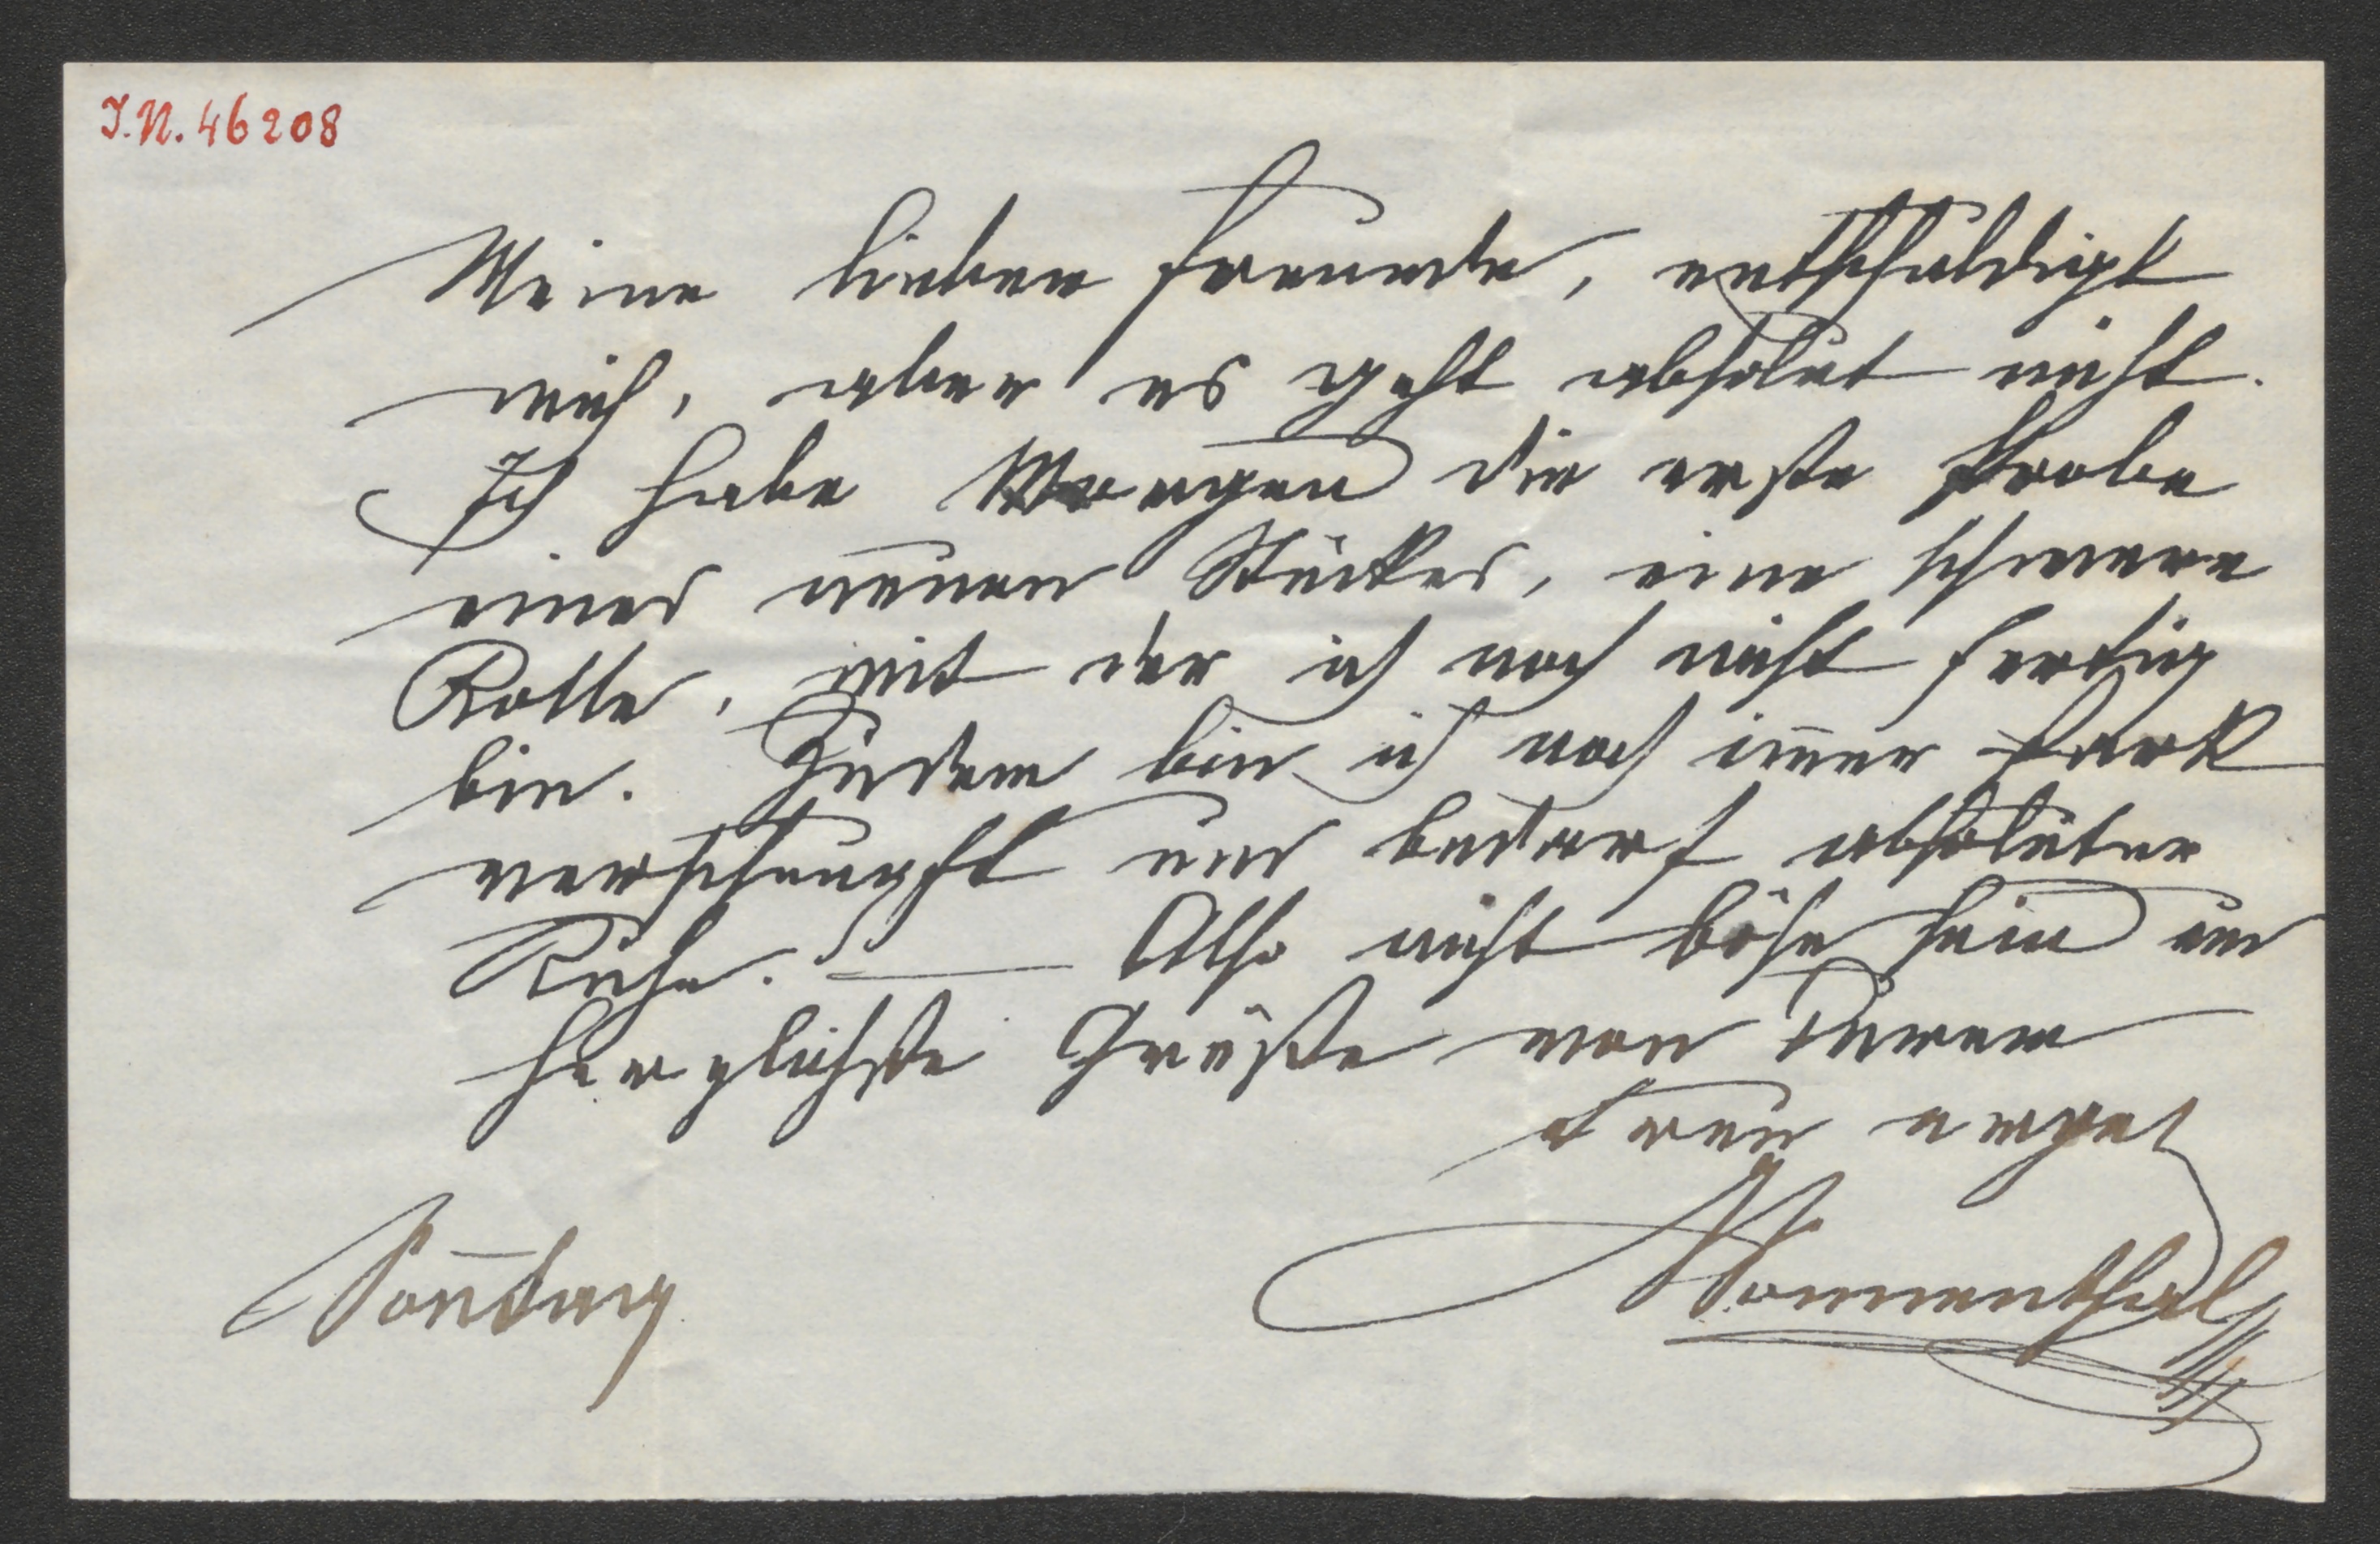 J.N. 46208
Meine lieben Freunde, entschuldigt
mich, aber es geht absolut nicht.
Ich habe Morgen die erste Probe
eines neuen Stückes, eine schwere
Rolle, mit der ich noch nicht fertig
bin. Zudem bin ich noch im̄er stark
verschnupft und bedarf absoluter
Ruhe. — Also nicht böse sein und
herzlichste Grüße von Eurem
treu ergeb
Sonnenthal
Son̄tag